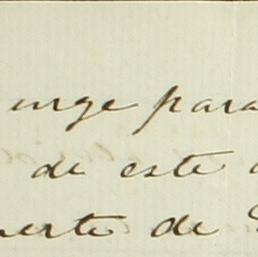 urge para
de este
de